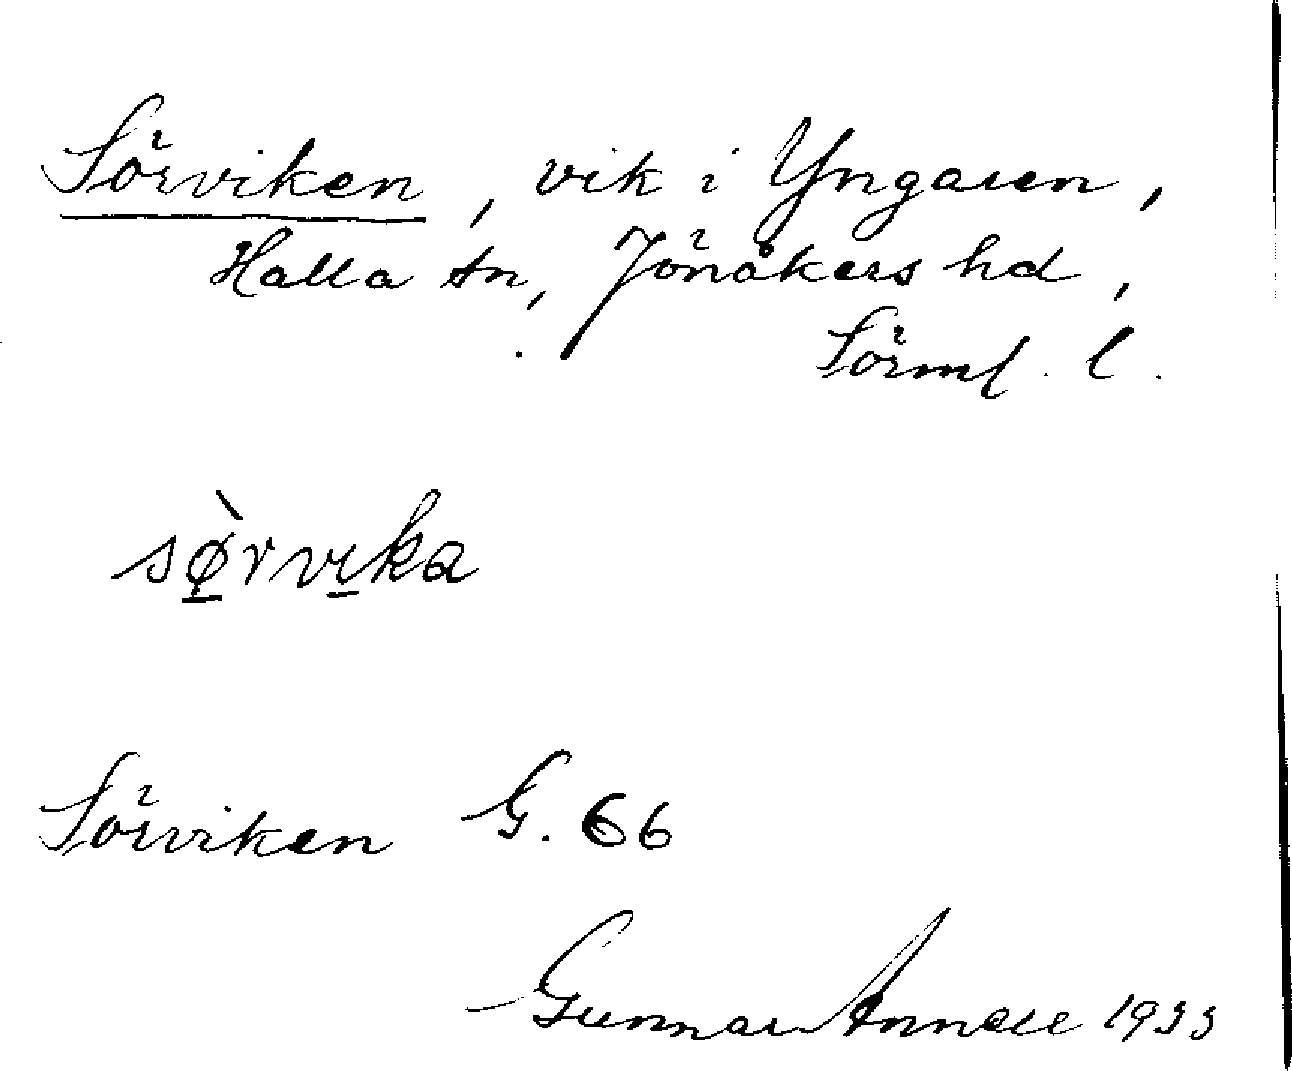 Sörviken, vik i Yngaren,
Halla sn, Jönåkers hd,
Sörml. l.
sø̀rvika
Sörviken G. 66
Gunnar Annell 1933